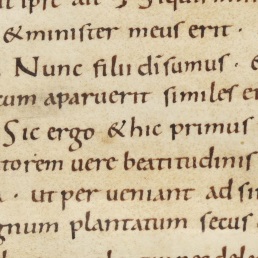 ipse ait
& minister meus erit ·
Nunc filii di sumus · &
cum aparuerit similes ei
Sic ergo & hic primus
torem vere beatitudinis
· ut per veniant ad sim
gnum plantatum secus